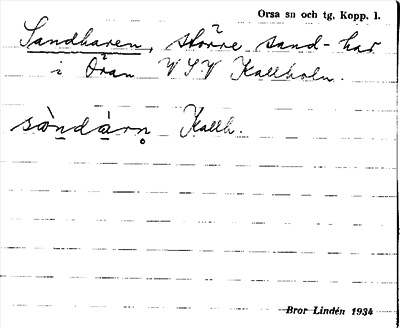 Orsa sn och tg. Kopp. l.
Sandharen, större sand-har
i Öran V S V Kallholn.
sàndàrn̥ Kallh.
Bror Lindén 1934